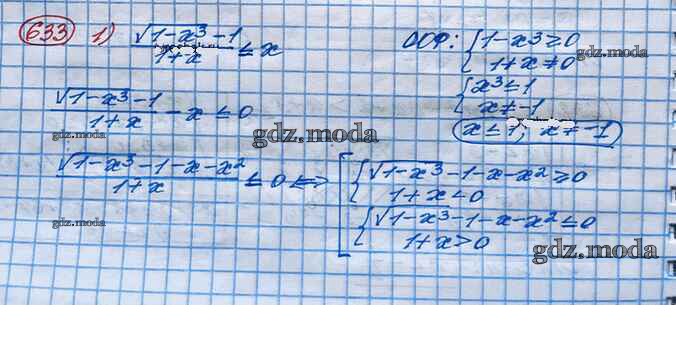 633 1) (√(1-x³) - 1)/(1+x) ≤ x ООФ: { 1-x³ ≥ 0
{ 1+x ≠ 0
gdz.moda
{ x³ ≤ 1
{ x ≠ -1
(√(1-x³) - 1)/(1+x) - x ≤ 0
gdz.moda
x ≤ 1; x ≠ -1
gdz.moda
(√(1-x³) - 1 - x - x²)/(1+x) ≤ 0 ⇔ [ { √(1-x³) - 1 - x - x² ≥ 0
{ 1+x < 0
{ √(1-x³) - 1 - x - x² ≤ 0
{ 1+x > 0
gdz.moda
gdz.moda
gdz.moda